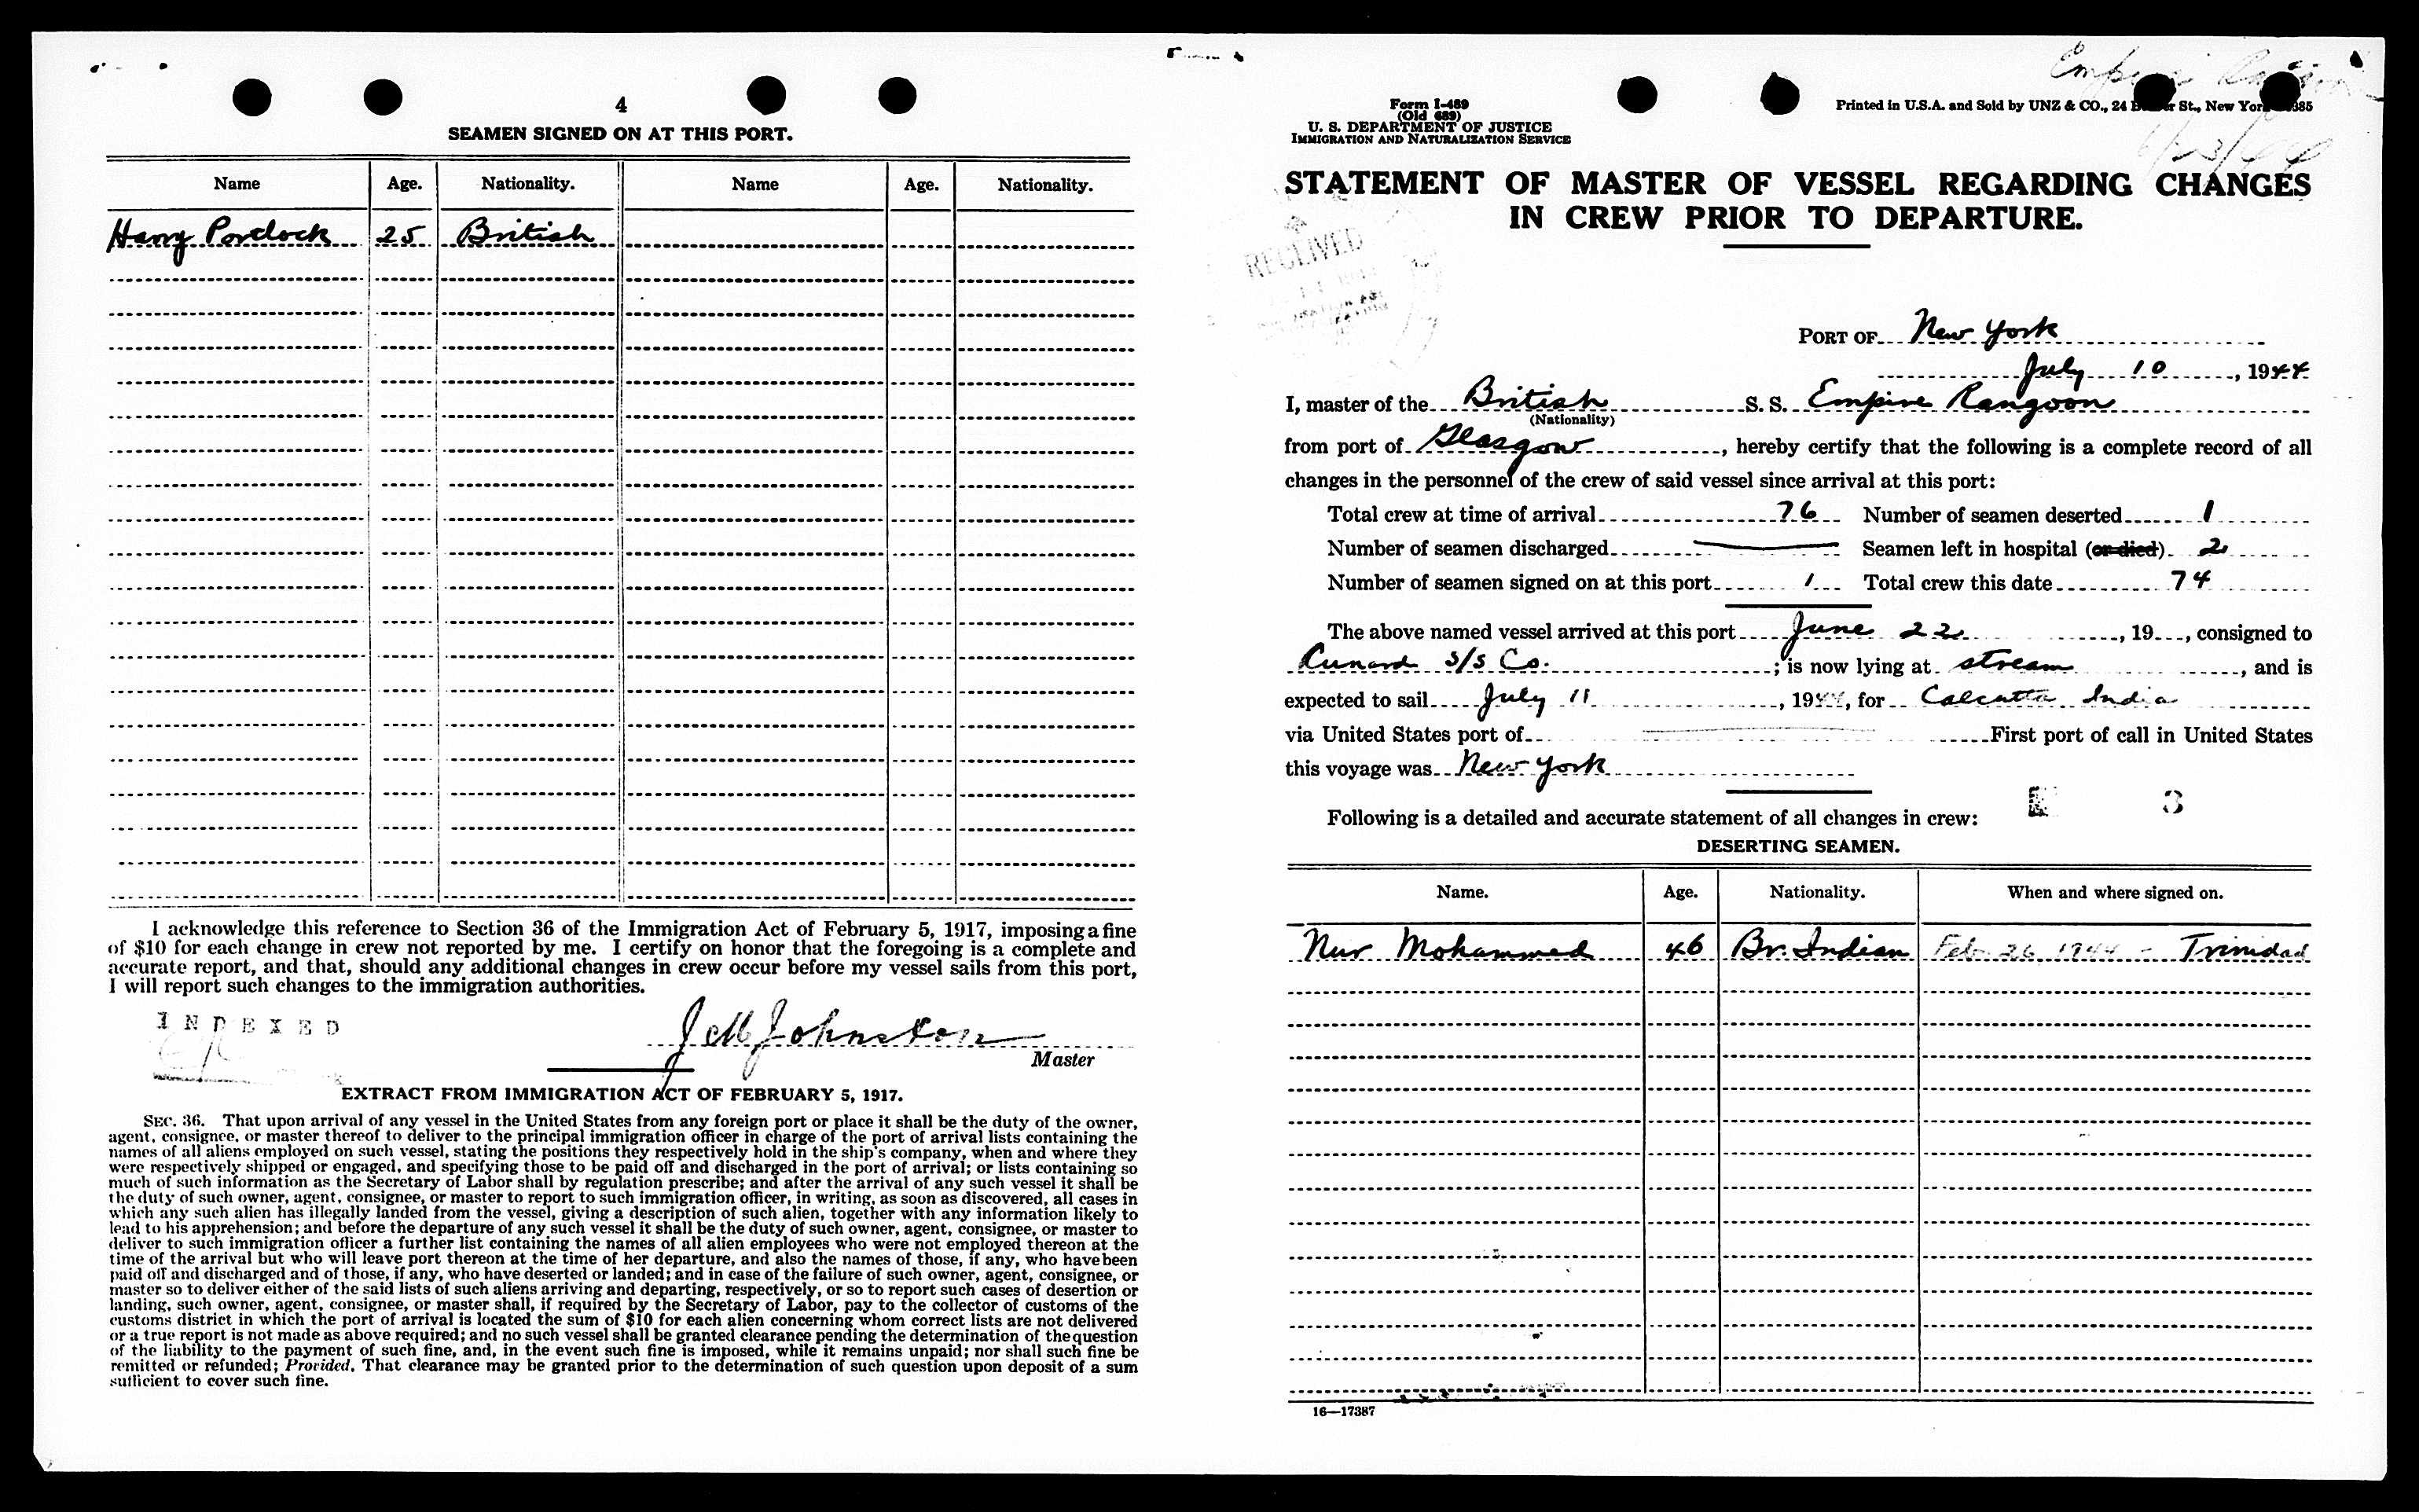 4
SEAMEN SIGNED ON AT THIS PORT.
Name Age. Nationality. Name Age. Nationality.
Harry Portlock 25 British
I acknowledge this reference to Section 36 of the Immigration Act of February 5, 1917, imposing a fine
of $10 for each change in crew not reported by me. I certify on honor that the foregoing is a complete and
accurate report, and that, should any additional changes in crew occur before my vessel sails from this port,
I will report such changes to the immigration authorities.
INDEXED
Johnston
Master
EXTRACT FROM IMMIGRATION ACT OF FEBRUARY 5, 1917.
SEC. 36. That upon arrival of any vessel in the United States from any foreign port or place it shall be the duty of the owner,
agent, consignee, or master thereof to deliver to the principal immigration officer in charge of the port of arrival lists containing the
names of all aliens employed on such vessel, stating the positions they respectively hold in the ship's company, when and where they
were respectively shipped or engaged, and specifying those to be paid off and discharged in the port of arrival; or lists containing so
much of such information as the Secretary of Labor shall by regulation prescribe; and after the arrival of any such vessel it shall be
the duty of such owner, agent, consignee, or master to report to such immigration officer, in writing, as soon as discovered, all cases in
which any such alien has illegally landed from the vessel, giving a description of such alien, together with any information likely to
lead to his apprehension; and before the departure of any such vessel it shall be the duty of such owner, agent, consignee, or master to
deliver to such immigration officer a further list containing the names of all alien employees who were not employed thereon at the
time of the arrival but who will leave port thereon at the time of her departure, and also the names of those, if any, who have been
paid off and discharged and of those, if any, who have deserted or landed; and in case of the failure of such owner, agent, consignee, or
master so to deliver either of the said lists of such aliens arriving and departing, respectively, or so to report such cases of desertion or
landing, such owner, agent, consignee, or master shall, if required by the Secretary of Labor, pay to the collector of customs of the
customs district in which the port of arrival is located the sum of $10 for each alien concerning whom correct lists are not delivered
or a true report is not made as above required; and no such vessel shall be granted clearance pending the determination of the question
of the liability to the payment of such fine, and, in the event such fine is imposed, while it remains unpaid; nor shall such fine be
remitted or refunded; Provided, That clearance may be granted prior to the determination of such question upon deposit of a sum
sufficient to cover such fine.
Form I-489
(Old 689)
U. S. DEPARTMENT OF JUSTICE
IMMIGRATION AND NATURALIZATION SERVICE
Printed in U.S.A. and Sold by UNZ & CO., 24 St., New
STATEMENT OF MASTER OF VESSEL REGARDING CHANGES
IN CREW PRIOR TO DEPARTURE.
RECEIVED
PORT OF New York
July 10, 1944
I, master of the British S. S. Empire Rangoon
(Nationality)
from port of Glasgow, hereby certify that the following is a complete record of all
changes in the personnel of the crew of said vessel since arrival at this port:
Total crew at time of arrival 76 Number of seamen deserted 1
Number of seamen discharged Seamen left in hospital (or died) 2
Number of seamen signed on at this port 1 Total crew this date 74
The above named vessel arrived at this port June 22, 19, consigned to
Cunard S/S Co.; is now lying at stream, and is
expected to sail July 11, 1944, for Calcutta India
via United States port of First port of call in United States
this voyage was New York
Following is a detailed and accurate statement of all changes in crew: 3
DESERTING SEAMEN.
Name. Age. Nationality. When and where signed on.
Nur Mohammed 46 Br. Indian Feb. 26, 1944 - Trinidad
16—17387